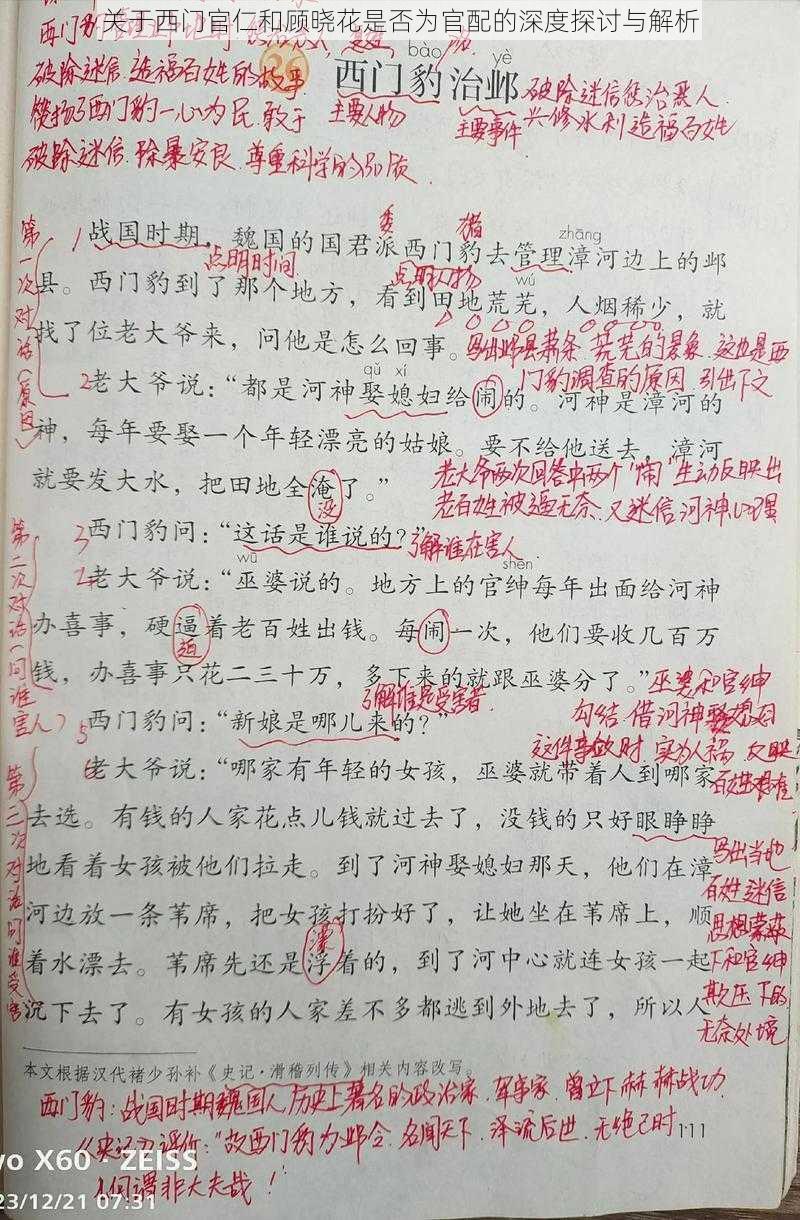 关于西门官仁和顾晓花是否为官配的深度探讨与解析
破除迷信、造福百姓的故事.
赞扬了西门豹一心为民.敢于
破除迷信.除暴安良.尊重科学的品质.
26
bào yè
西门豹治邺
主要人物
主要事件
破除迷信惩治恶人.
兴修水利造福百姓
第一次对话(原因)
1 战国时期，魏国的国君派西门豹去管理漳河边上的邺
委 猪 zhāng
点明时间
点明人物
县。西门豹到了那个地方，看到田地荒芜，人烟稀少，就
wú
找了位老大爷来，问他是怎么回事。
写出邺县萧条.荒芜的景象.这也是西
门豹调查的原因.引出下文
qǔ xí
2 老大爷说：“都是河神娶媳妇给闹的。河神是漳河的
神，每年要娶一个年轻漂亮的姑娘。要不给他送去，漳河
就要发大水，把田地全淹了。”
没
老大爷两次回答中两个“闹”生动反映出
老百姓被逼无奈.又迷信河神心理
第二次对话(问谁害人)
3 西门豹问：“这话是谁说的？”
了解谁在害人.
wū shēn
老大爷说：“巫婆说的。地方上的官绅每年出面给河神
办喜事，硬逼着老百姓出钱。每闹一次，他们要收几百万
迫
钱，办喜事只花二三十万，多下来的就跟巫婆分了。”
巫婆和官绅
勾结.借河神娶媳妇
这件事敛财.实为人祸.反映
百姓艰难
了解谁是受害者.
5 西门豹问：“新娘是哪儿来的？”
第三次对话问谁受害
老大爷说：“哪家有年轻的女孩，巫婆就带着人到哪家
去选。有钱的人家花点儿钱就过去了，没钱的只好眼睁睁
地看着女孩被他们拉走。到了河神娶媳妇那天，他们在漳
河边放一条苇席，把女孩打扮好了，让她坐在苇席上，顺
着水漂去。苇席先还是浮着的，到了河中心就连女孩一起
沉下去了。有女孩的人家差不多都逃到外地去了，所以人
写出当地
百姓迷信
思想蒙蔽
下和官绅
欺压下的
无奈处境
本文根据汉代褚少孙补《史记·滑稽列传》相关内容改写。
西门豹：战国时期魏国人.历史上著名的政治家.军事家.曾立下赫赫战功.
《史记》评价：“故西门豹为邺令.名闻天下.泽流后世.无绝已时
111
何谓非大夫哉！”
vo X60 · ZEISS
23/12/21 07:31